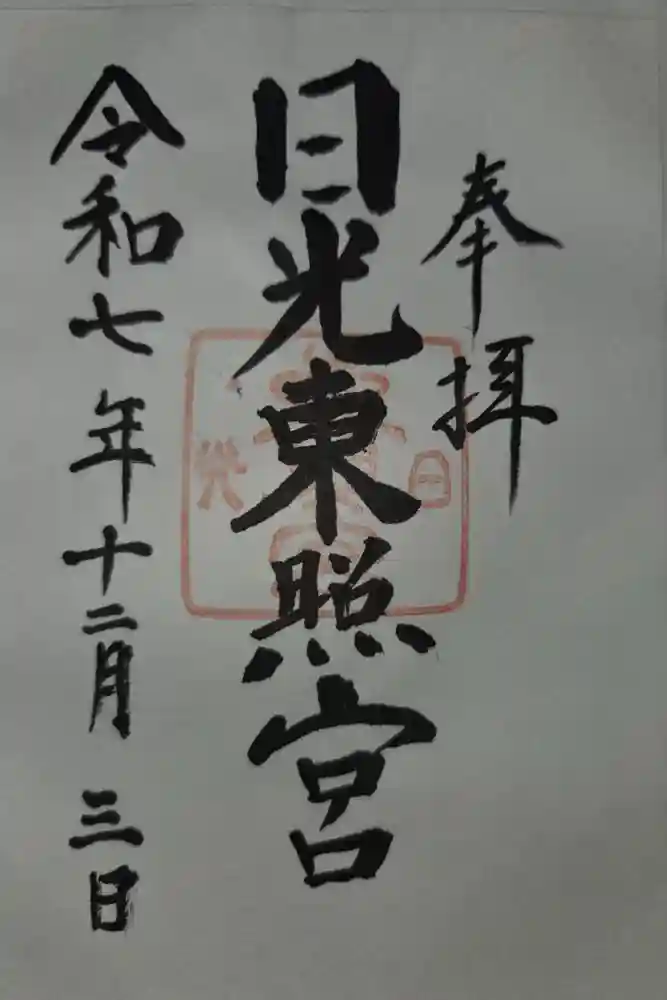 奉拝
日光東照宮
令和七年十二月三日